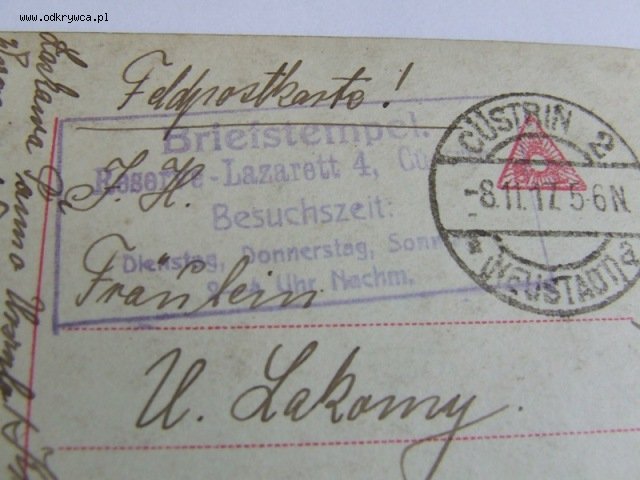 www.odkrywca.pl
Feldpostkarte!
Briefstempel.
Reserve-Lazarett 4, Cü
J. H.
Besuchszeit:
Dienstag, Donnerstag, Sonn
Uhr Nachm.
Fräulein
U. Lakomy.
CÜSTRIN 2
-8.11.17. 5-6 N.
* (NEUSTADT) a
Panno